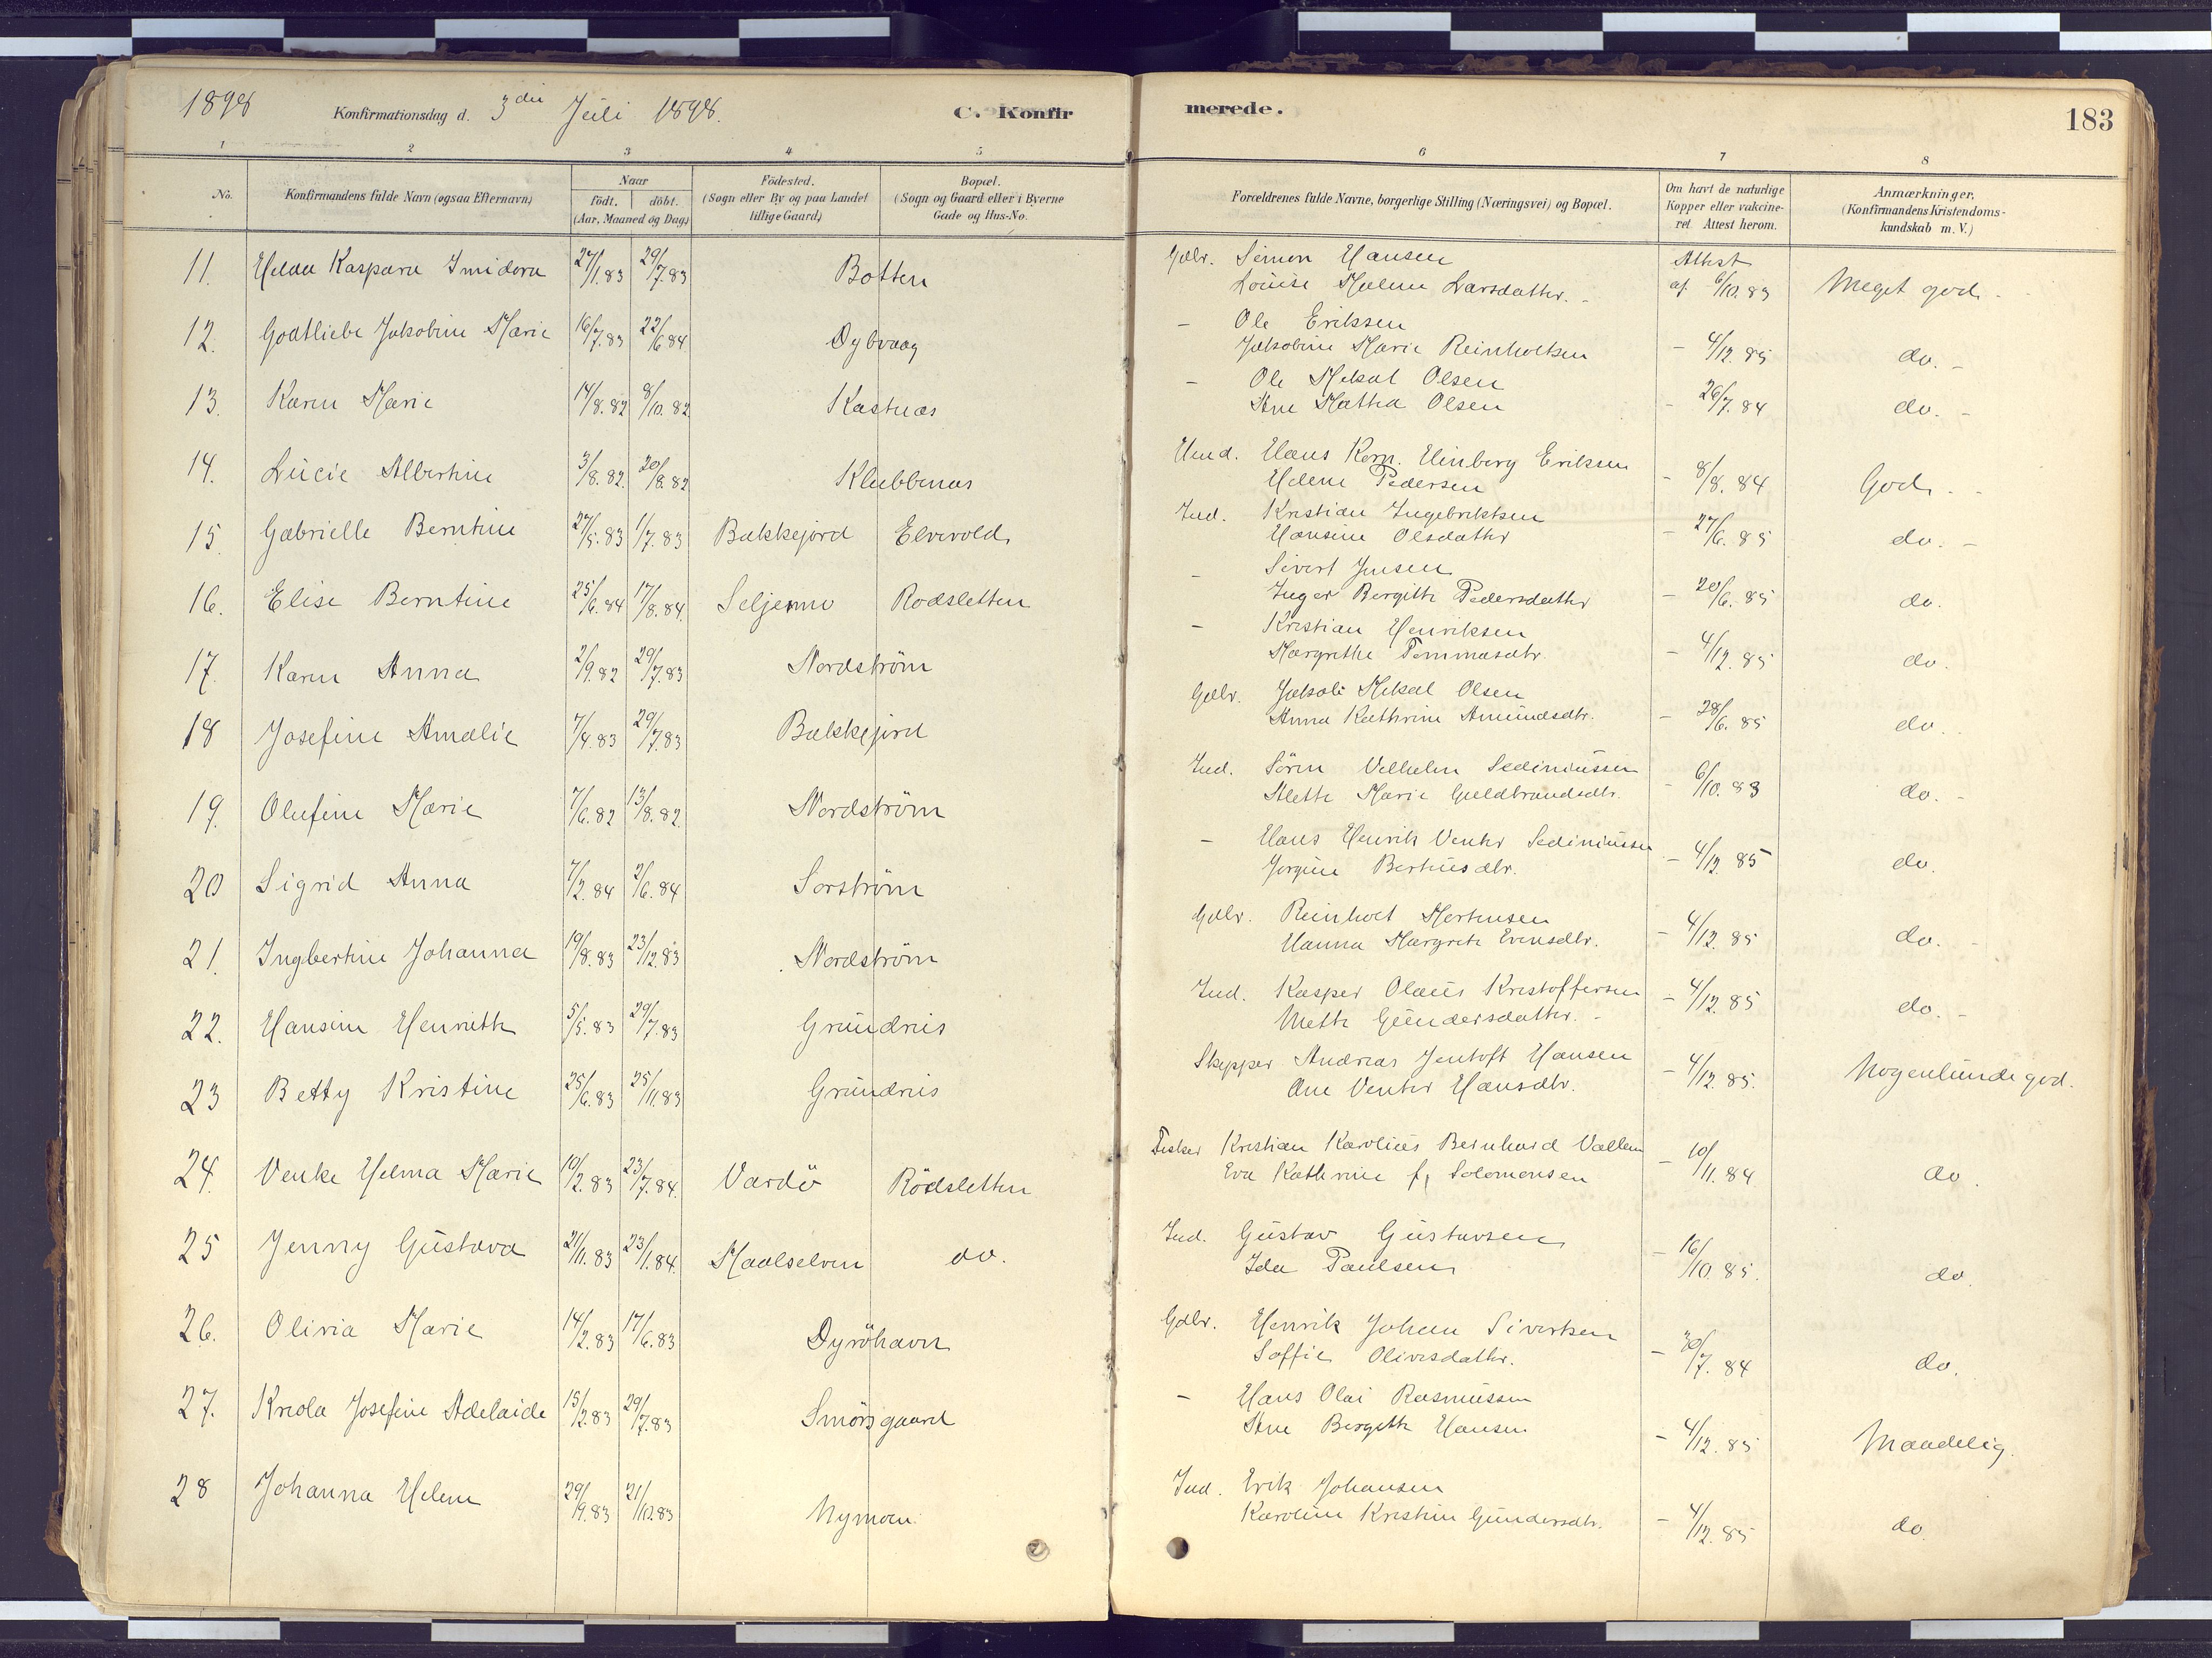 1898 Konfirmationsdag d. 3die Juli 1898. C. Konfir merede. 183
1 2 3 4 5 6 7 8
No. Konfirmandens fulde Navn (ogsaa Efternavn) Naar födt. döbt. (Aar, Maaned og Dag) Födested. (Sogn eller By og paa Landet tillige Gaard) Bopæl. (Sogn og Gaard eller i Byerne Gade og Hus-No. Forældrenes fulde Navne, borgerlige Stilling (Næringsvei) og Bopæl. Om havt de naturlige Kopper eller vakcineret. Attest herom. Anmærkninger, (Konfirmandens Kristendomskundskab m. V.)
11. Helda Kaspara Imidora 27/1.83 29/7.83 Botten Gdbr. Simon Hansen Attest
Louise Malene Larsdatter. - af 6/10.83 Meget god. -
12. Godtliebe Jakobine Marie 16/7.83 22/6.84 Dybvaag - Ole Eriksen
Jakobine Marie Reinholtsen - 4/12.85 do. -
13. Karen Marie 14/8.82 8/10.82 Kastnæs - Ole Mikal Olsen
Ane Mathea Olsen - 26/7.84 do. -
14. Lucie Albertine 3/8.82. 20/8.82 Klubbenæs Ind. Hans Korn. Elinberg Eriksen
Helene Pedersen - 8/8.84 God. -
15. Gabrielle Berntine 27/5.83 1/7.83 Bakkejord Elvevold Ind. Kristian Ingebriktsen
Hansine Olsdatter - 27/6.85 do. -
16. Elise Berntine 25/6.84 17/8.84. Seljemo Rodsletten - Sivert Jensen
Inger Bergitte Pedersdatter - 20/6.85 do.
17. Karen Anna 2/9.82 29/7.83 Nordström - Kristian Henriksen
Margrethe Tommasdtr - 4/12.85 do.
18 Josefine Amalie 7/4.83 29/7.83 Bakkejord Gdbr. Jakob Mikal Olsen
Anna Kathrine Amundsdtr. - 28/6.85 do.
19. Olufine Marie 7/6.82 13/8.82. Nordström Ind. Sören Vilhelm Sediniussen
Aletta Marie Guldbrandsdtr. - 6/10.83 do. -
20 Sigrid Anna 7/2.84 2/6.84 Sorström - Hans Henrik Venter Sediniussen
Jorgine Bertheusdtr. - 4/12.85 do.
21. Ingbertine Johanna 19/8.83 23/12.83 Nordström Gdbr. Reinholt Mortensen
Hanna Margrete Evensdtr. - 4/12.85 do. -
22. Hansine Henriette 5/5.83 29/7.83 Grundnæs Ind. Kasper Olaus Kristoffersen
Mette Gundersdatter. - - 4/12.85 do. -
23 Betty Kristine 25/6.83 25/11.83 Grundnæs Skipper Andreas Jentoft Hansen
Ane Venter Hansdtr. - 4/12.85. Nogenlunde god.
24. Venke Helma Marie 19/2.83 23/7.84. Vardö Rödsletten Fisker Kristian Karolius Bernhard Vallen
Eva Kathrine f. Solomonsen - 10/11.84 do.
25 Jenny Gustava 21/11.83 23/1.84. Maalselven do. Ind. Gustav Gustavsen
Ida Paulsen - 16/10.85. do.
26. Olivia Marie 14/2.83 17/6.83 Dyröhavn Gdbr. Henrik Johan Sivertsen
Soffie Oliversdatter. - 30/7.84 do.
27. Kreola Josefine Adelaide 15/2.83 29/7.83 Smörsgaard - Hans Olai Rasmussen
Ane Bergitte Hansen - 4/12.85 Maadelig.
28 Johanna Helene 29/9.83 21/10.83 Nymoen Ind. Erik Johansen
Karoline Kristine Gundersdtr. - 4/12.85 do.